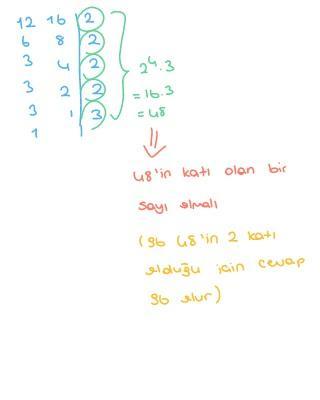 12 16 2
6 8 2
3 4 2
3 2 2
3 1 3
1
2⁴.3
=16.3
=48
48'in katı olan bir
sayı olmalı
(96 48'in 2 katı
olduğu için cevap
96 olur)